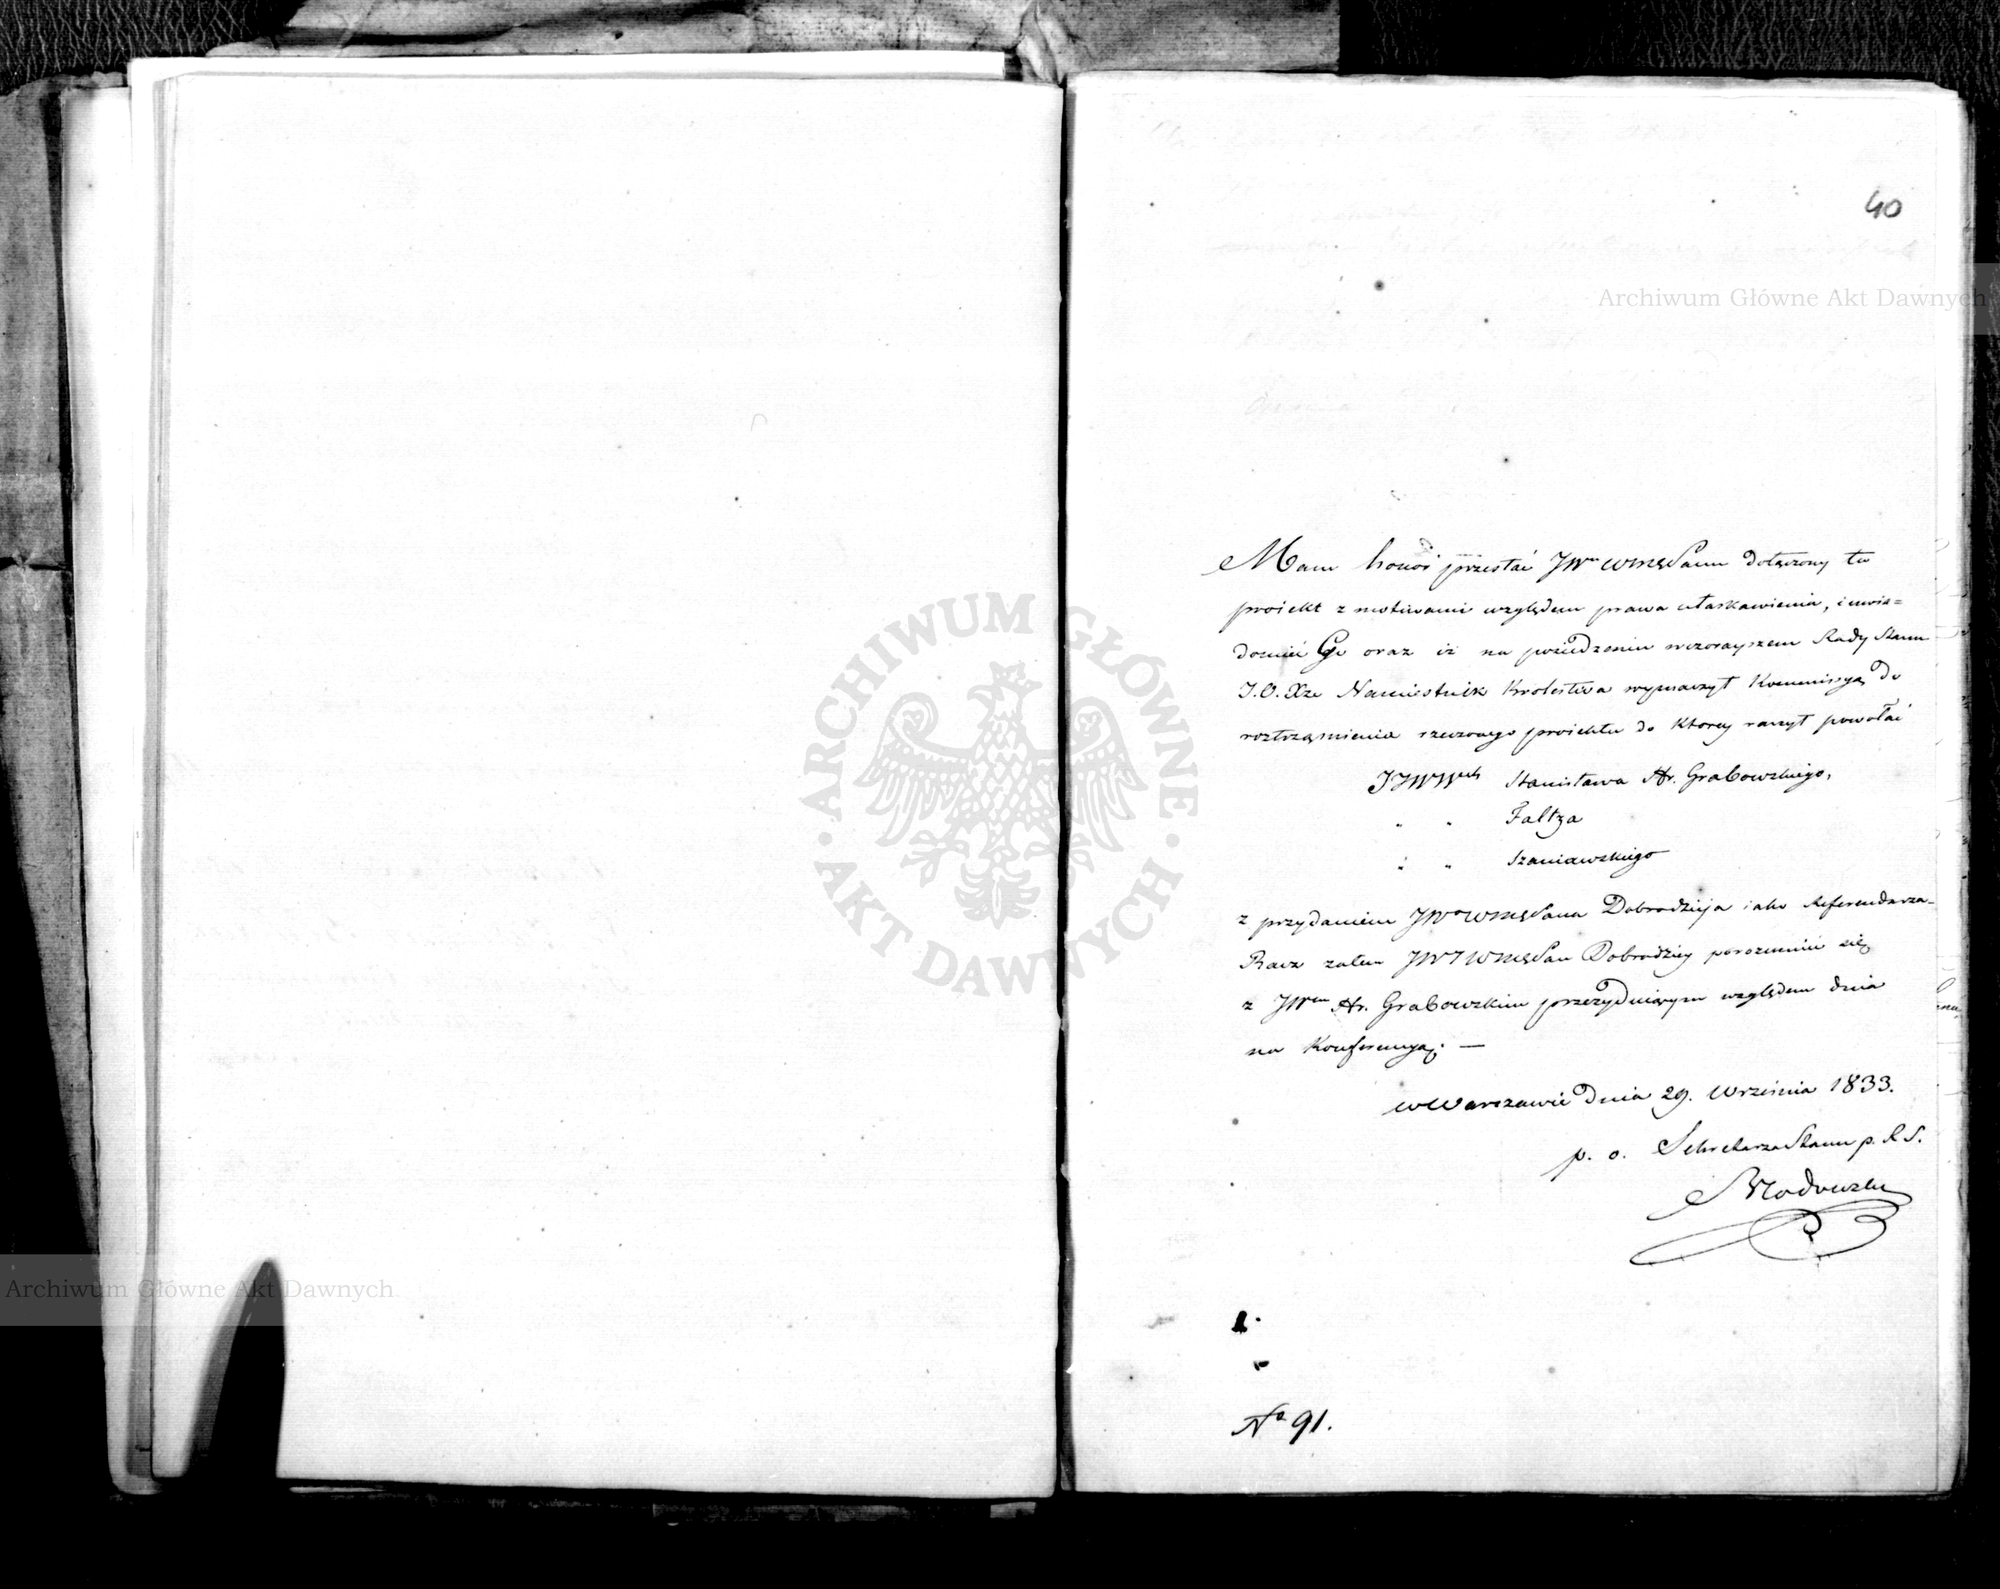 40
Archiwum Główne Akt Dawnych
Mam honor przesłać JWmu WMę Panu dołączony tu
proiekt z motiwami względem prawa ułaskawienia, i uwia=
domić Go oraz iż na posiedzeniu wczorayszem Rady Stanu
J.O. Xże Namiestnik Królestwa wyznaczył Kommissyą do
roztrząśnienia rzeczonego proiektu do którey raczył powołać
JJWWych Stanisława Hr. Grabowskiego,
" " Faltza
" " Szaniawskiego
z przydaniem JWo WMę Pana Dobrodzieja iako Referendarza-
Racz zatem JWJ WMę Pan Dobrodziey porozumieć się
z JWm Hr. Grabowskim prezyduiącym względem dnia
na Konferencyą. —
w Warszawie Dnia 29. Września 1833.
p. o. Sekretarza Stanu p. R S.
1.
"
No 91.
ARCHIWUM GŁÓWNE · AKT DAWNYCH ·
Archiwum Główne Akt Dawnych